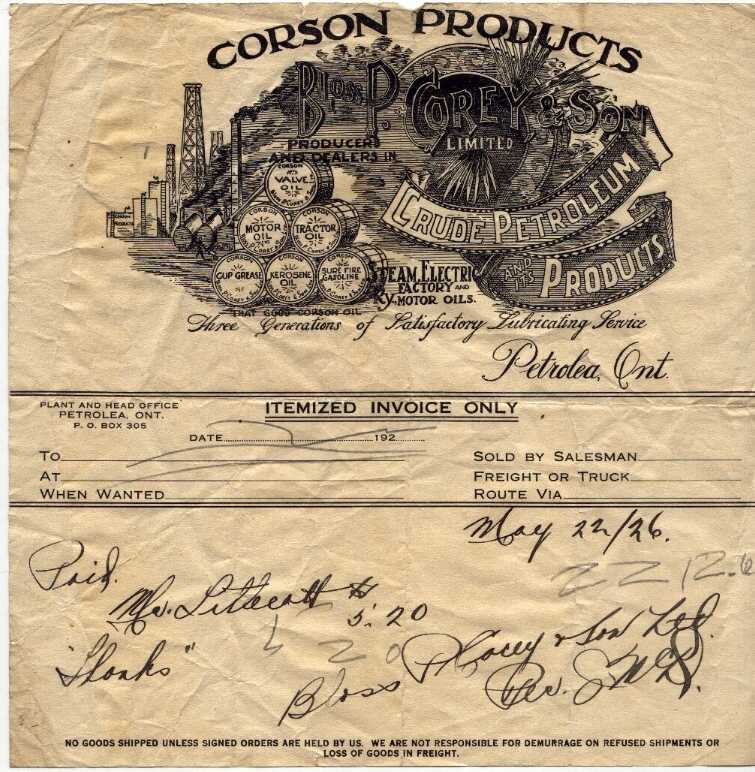 CORSON PRODUCTS
Bloss P. COREY & SON
LIMITED
PRODUCERS
AND DEALERS IN
CORSON
VALVE
OIL
CORSON
MOTOR
OIL
CORSON
TRACTOR
OIL
CORSON
CUP GREASE
CORSON
KEROSENE
OIL
CORSON
SURE FIRE
GASOLINE
THAT GOOD CORSON OIL
CRUDE PETROLEUM
AND ITS PRODUCTS
STEAM, ELECTRIC
FACTORY AND
RY. MOTOR OILS.
Three Generations of Satisfactory Lubricating Service
Petrolea, Ont.
PLANT AND HEAD OFFICE
PETROLEA, ONT.
P. O. BOX 305
ITEMIZED INVOICE ONLY
DATE 192
TO
AT
WHEN WANTED
SOLD BY SALESMAN
FREIGHT OR TRUCK
ROUTE VIA
May 22/26.
Paid.
Mr. Littecott $
5.20
"Thanks"
Bloss P Corey & Son Ltd.
Per.
NO GOODS SHIPPED UNLESS SIGNED ORDERS ARE HELD BY US. WE ARE NOT RESPONSIBLE FOR DEMURRAGE ON REFUSED SHIPMENTS OR
LOSS OF GOODS IN FREIGHT.